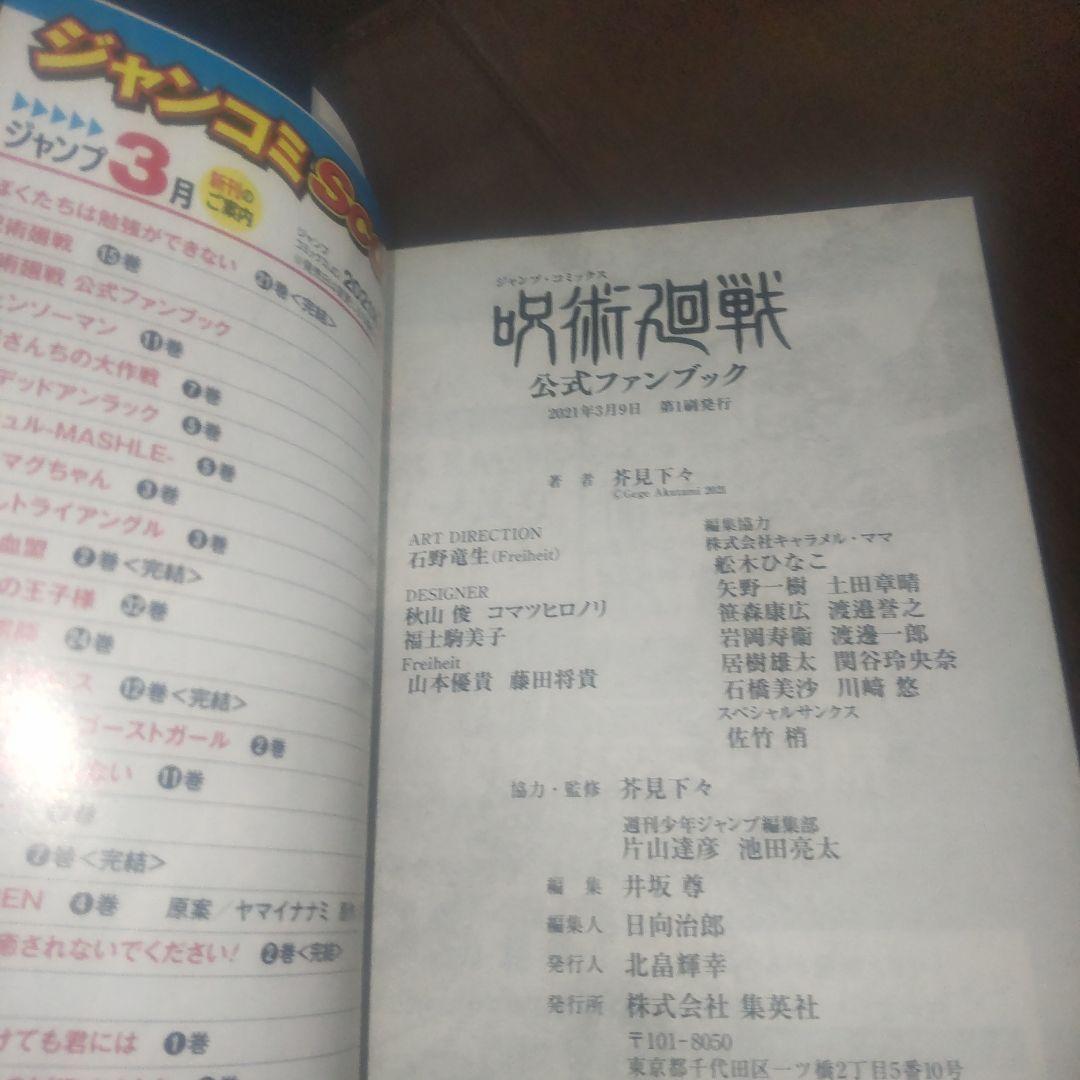 ジャンコミ
ジャンプ3月
新刊の
ご案内
ぼくたちは勉強ができない ㉑巻<完結>
呪術廻戦 ⑮巻
術廻戦 公式ファンブック
ェンソーマン ⑪巻
さんちの大作戦 ⑦巻
デッドアンラック ⑤巻
ュル-MASHLE- ⑤巻
マグちゃん ③巻
トライアングル ③巻
血盟 ②巻<完結>
の王子様 ㉜巻
㉔巻
ス ⑫巻<完結>
ゴーストガール ②巻
ない ⑪巻
巻
⑦巻<完結>
EN ④巻 原案/ヤマイナナミ
癒されないでください! ②巻<完結>
けても君には ①巻
ジャンプ・コミックス
呪術廻戦
公式ファンブック
2021年3月9日 第1刷発行
著者 芥見下々
©Gege Akutami 2021
ART DIRECTION
石野竜生(Freiheit)
DESIGNER
秋山 俊 コマツヒロノリ
福士駒美子
Freiheit
山本優貴 藤田将貴
編集協力
株式会社キャラメル・ママ
舩木ひなこ
矢野一樹 土田章晴
笹森康広 渡邉誉之
岩岡寿衛 渡邊一郎
居樹雄太 関谷玲央奈
石橋美沙 川﨑 悠
スペシャルサンクス
佐竹 梢
協力・監修 芥見下々
週刊少年ジャンプ編集部
片山達彦 池田亮太
編集 井坂 尊
編集人 日向治郎
発行人 北畠輝幸
発行所 株式会社 集英社
〒101-8050
東京都千代田区一ツ橋2丁目5番10号